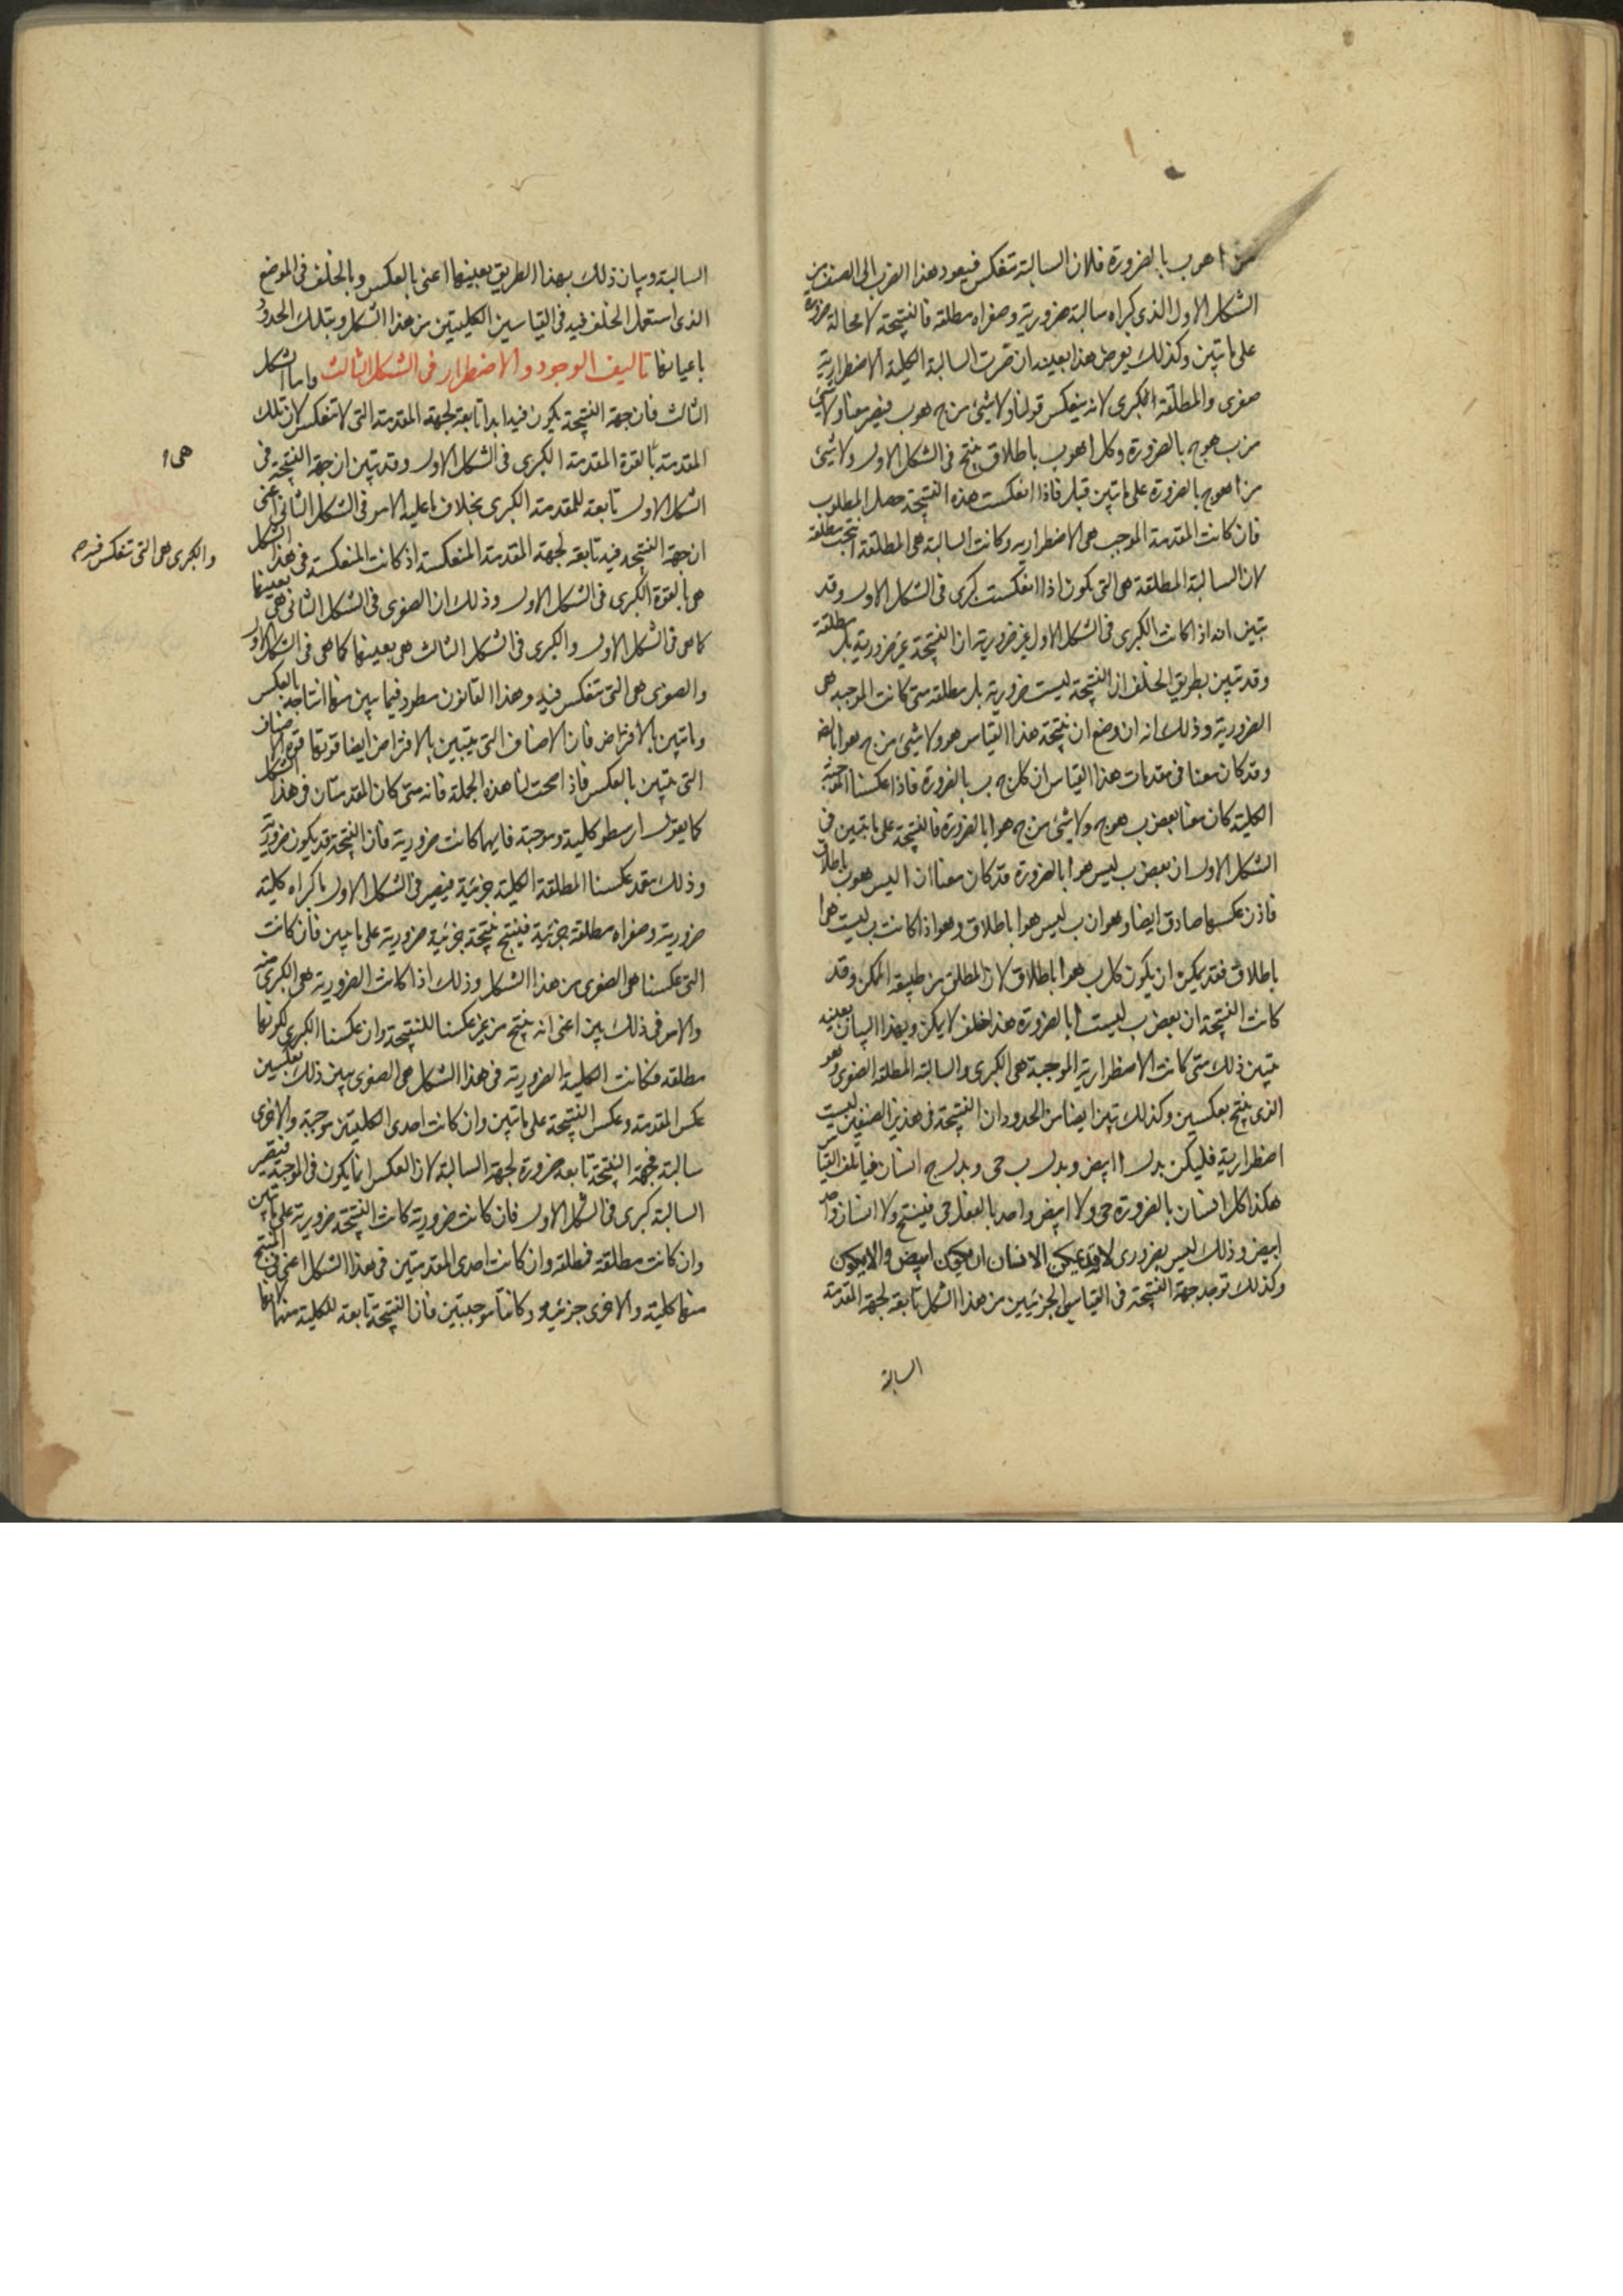 من ا هو ب بالضرورة فلان السالبة تنعكس فيعود هذا الضرب الى الصنف من
الشكل الاول الذى كبراه سالبة ضرورية وصغراه مطلقة فالنتيجة لا محالة ضرورة
على ما تبين وكذلك يعرض هذا بعينه ان صيرت السالبة الكلية الاضطرارية
صغرى والمطلقة الكبرى لانه ينعكس قولنا ولا شئ من ج هو ب فيصير معنا ولا شئ
من ب هو ج بالضرورة وكل ا هو ب باطلاق ينتج فى الشكل الاول ولا شئ
من ا هو ج بالضرورة على ما تبين قبل فاذا انعكست هذه النتيجة حصل المطلوب
فان كانت المقدمة الموجب هى الاضطرارية وكانت السالبة هى المطلقة انتجت مطلقة
لان السالبة المطلقة هى التى تكون اذا انعكست كبرى فى الشكل الاول وقد
تبين انه اذا كانت الكبرى فى الشكل الاول غير ضرورية ان النتيجة غير ضرورية بل مطلقة
وقد تبين بطريق الخلف ان النتيجة ليست ضرورية بل مطلقة متى كانت الموجبة هى
الضرورية وذلك انه ان وضع ان نتيجة هذا القياس هو ولا شئ من ج هو ا بالضر
وقد كان معنا فى مقدمات هذا القياس ان كل ج ب بالضرورة فاذا عكسنا الموجبة
الكلية كان معنا بعض ب هو ج ولا شئ من ج هو ا بالضرورة فالنتيجة على ما تبين فى
الشكل الاول ان بعض ب ليس هو ا بالضرورة قد كان معنا ان ا ليس هو ب باطلاق
فاذن عكسها صادق ايضا وهو ان ب ليس هو ا باطلاق وهو اذا كانت ب ليست هو ا
باطلاق فقد يمكن ان يكون كل ب هو ا باطلاق لان المطلق من طبيعة الممكن وقد
كانت النتيجة ان بعض ب ليست ا بالضرورة هذا خلف لا يمكن وبهذا البيان بعينه
يتبين ذلك متى كانت الاضطرارية الموجبة هى الكبرى والسالبة المطلقة الصغرى وهو
الذى ينتج بعكسين وكذلك تبين ايضا من الحدود ان النتيجة فى هذين الصنفين ليست
اضطرارية فليكن بدل ا ابيض وبدل ب حى وبدل ج انسان فيأتلف القياس
هكذا كل انسان بالضرورة حى ولا ابيض واحد بالفعل حى فينتج ولا انسان واحد
ابيض وذلك ليس بضرورى لانه قد يمكن الانسان ان يكون ابيض والا يكون
وكذلك توجد جهة النتيجة فى القياس الجزئيين من هذا الشكل تابعة لجهة المقدمة
السالبة
السالبة وبيان ذلك بهذا الطريق بعينها اعنى بالعكس وبالخلف فى الموضع
الذى استعمل الخلف فيه فى القياسين الكليتين من هذا الشكل وبتلك الحدود
باعيانها تاليف الوجود والاضطرار فى الشكل الثالث واما الشكل
الثالث فان جهة النتيجة يكون فيه ابدا تابعة لجهة المقدمة التى لا تنعكس لان تلك
المقدمة بالقوة المقدمة الكبرى فى الشكل الاول وقد تبين ان جهة النتيجة فى
هى
الشكل الاول تابعة للمقدمة الكبرى بخلاف ما عليه الامر فى الشكل الثانى اعنى
ان جهة النتيجة فيه تابعة لجهة المقدمة المنعكسة اذ كانت المنعكسة فى هذا الشكل
والكبرى هى التى تنعكس فيه
هى بالقوة الكبرى فى الشكل الاول وذلك ان الصغرى فى الشكل الثانى هى بعينها
كما هى فى الشكل الاول والكبرى فى الشكل الثالث هى بعينها كما هى فى الشكل الاول
والصغرى هى التى تنعكس فيه وهذا القانون مطرد فيما يبين منها انتاجه بالعكس
وما تبين بالافتراض فان الاصناف التى تتبين بالافتراض ايضا قوتها قوة الاصناف
التى تتبين بالعكس فاذ امحت لنا هذه الجملة فانه متى كان المقدمتان فى هذا الشكل
كما يقول ارسطو كلية وموجبة فايهما كانت ضرورية فان النتيجة قد يكون ضرورية
وذلك بعد عكسنا المطلقة الكلية جزئية فيصير فى الشكل الاول ما كبراه كلية
ضرورية وصغراه مطلقة جزئية فينتج نتيجة جزئية ضرورية على ما تبين فان كانت
التى عكسنا هى الصغرى من هذا الشكل وذلك اذا كانت الضرورية هى الكبرى منه
والامر فى ذلك بين اعنى انه ينتج من غير عكسنا للنتيجة وان عكسنا الكبرى لكونها
مطلقة فكانت الكلية الضرورية فى هذا الشكل هى الصغرى يبين ذلك بعكسين
عكس المقدمة وعكس النتيجة على ما تبين وان كانت احدى الكليتين موجبة والاخرى
سالبة فجهة النتيجة تابعة ضرورة لجهة السالبة لان العكس انما يكون فى الموجبة فتصير
السالبة كبرى فى الشكل الاول فان كانت ضرورية كانت النتيجة ضرورية على ما تبين
وان كانت مطلقة فمطلقة وان كانت احدى المقدمتين فى هذا الشكل اعنى فى المنتج
منها كلية والاخرى جزئية وكانتا موجبتين فان النتيجة تابعة للكلية منهما لانها